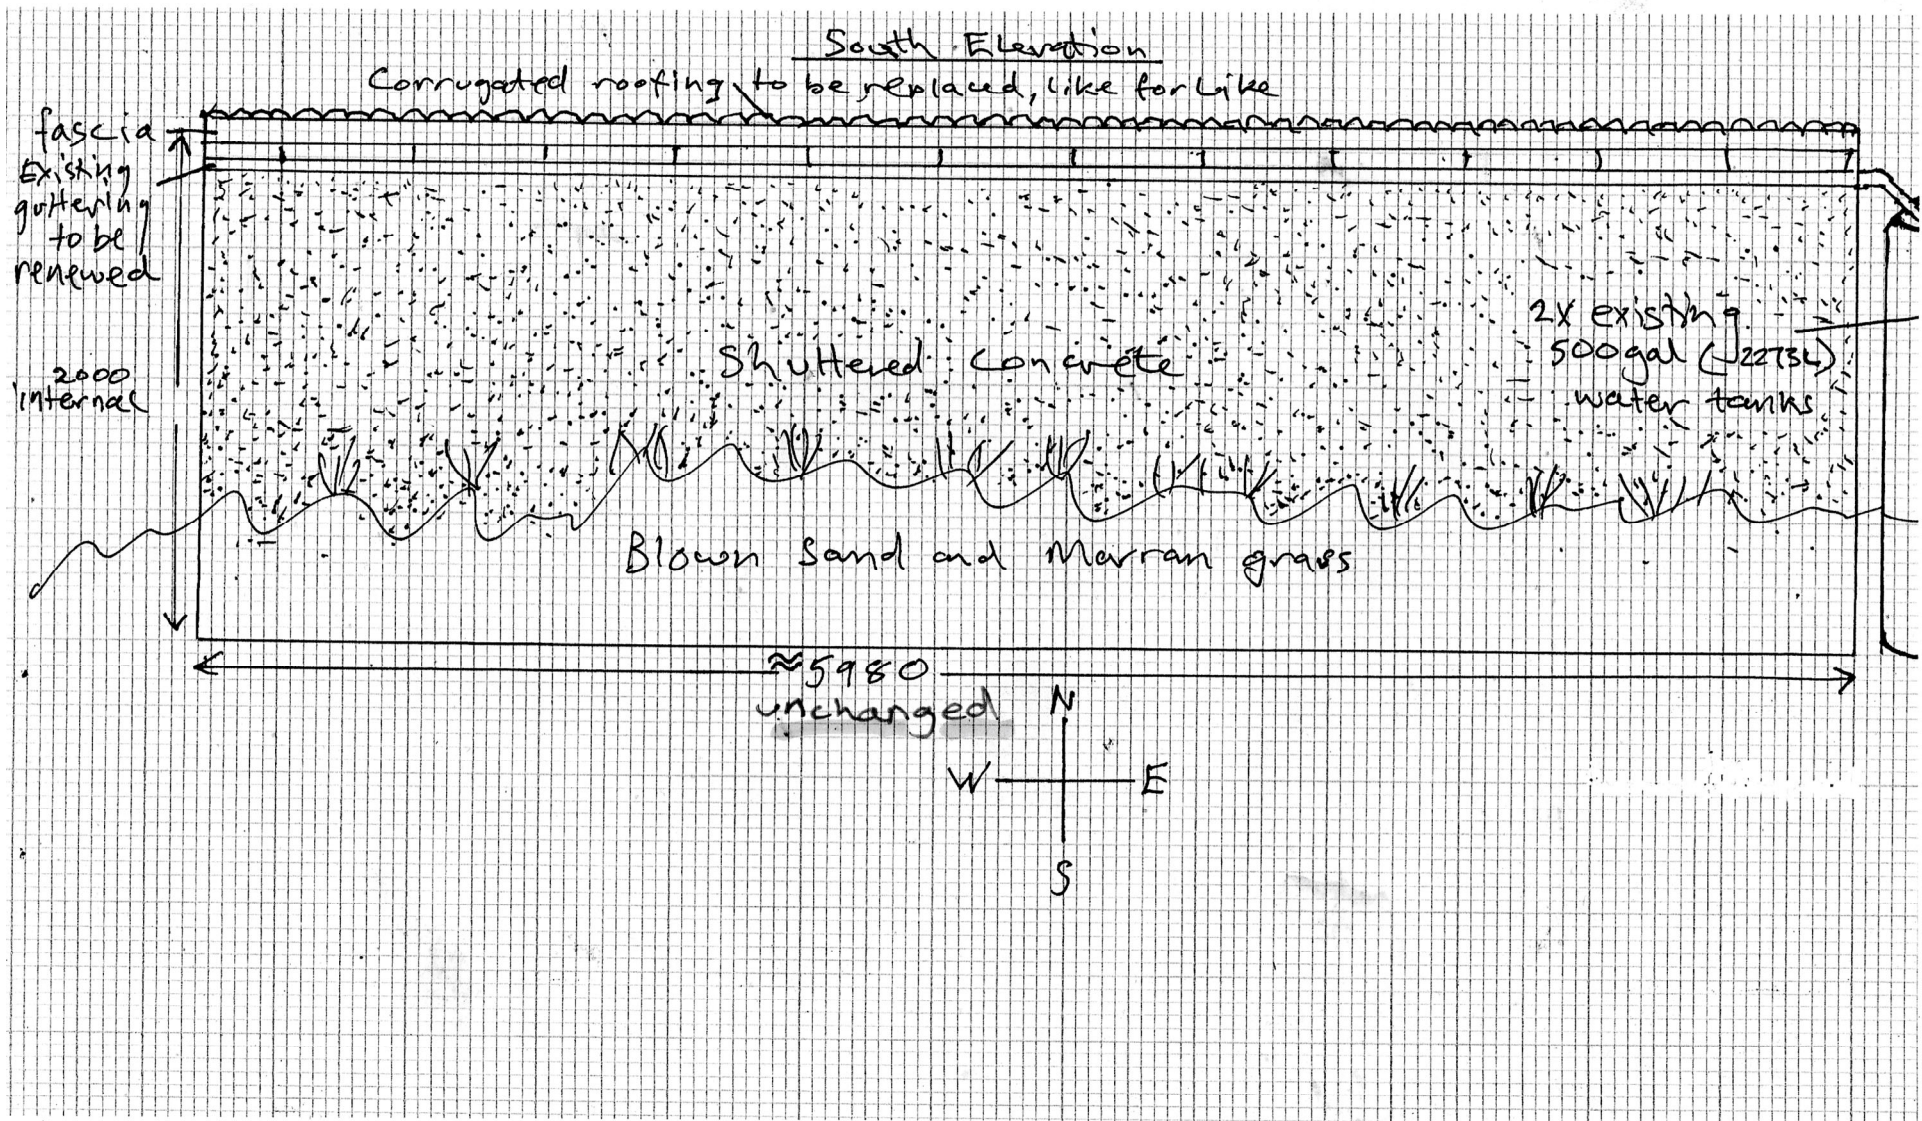 South Elevation
Corrugated roofing to be replaced, like for Like
fascia
Existing
guttering
to be
renewed
2000
internal
2x existing
500gal (~2273L)
water tanks
Shuttered Concrete
Blown Sand and Marran grass
≈5980
unchanged
N
W E
S